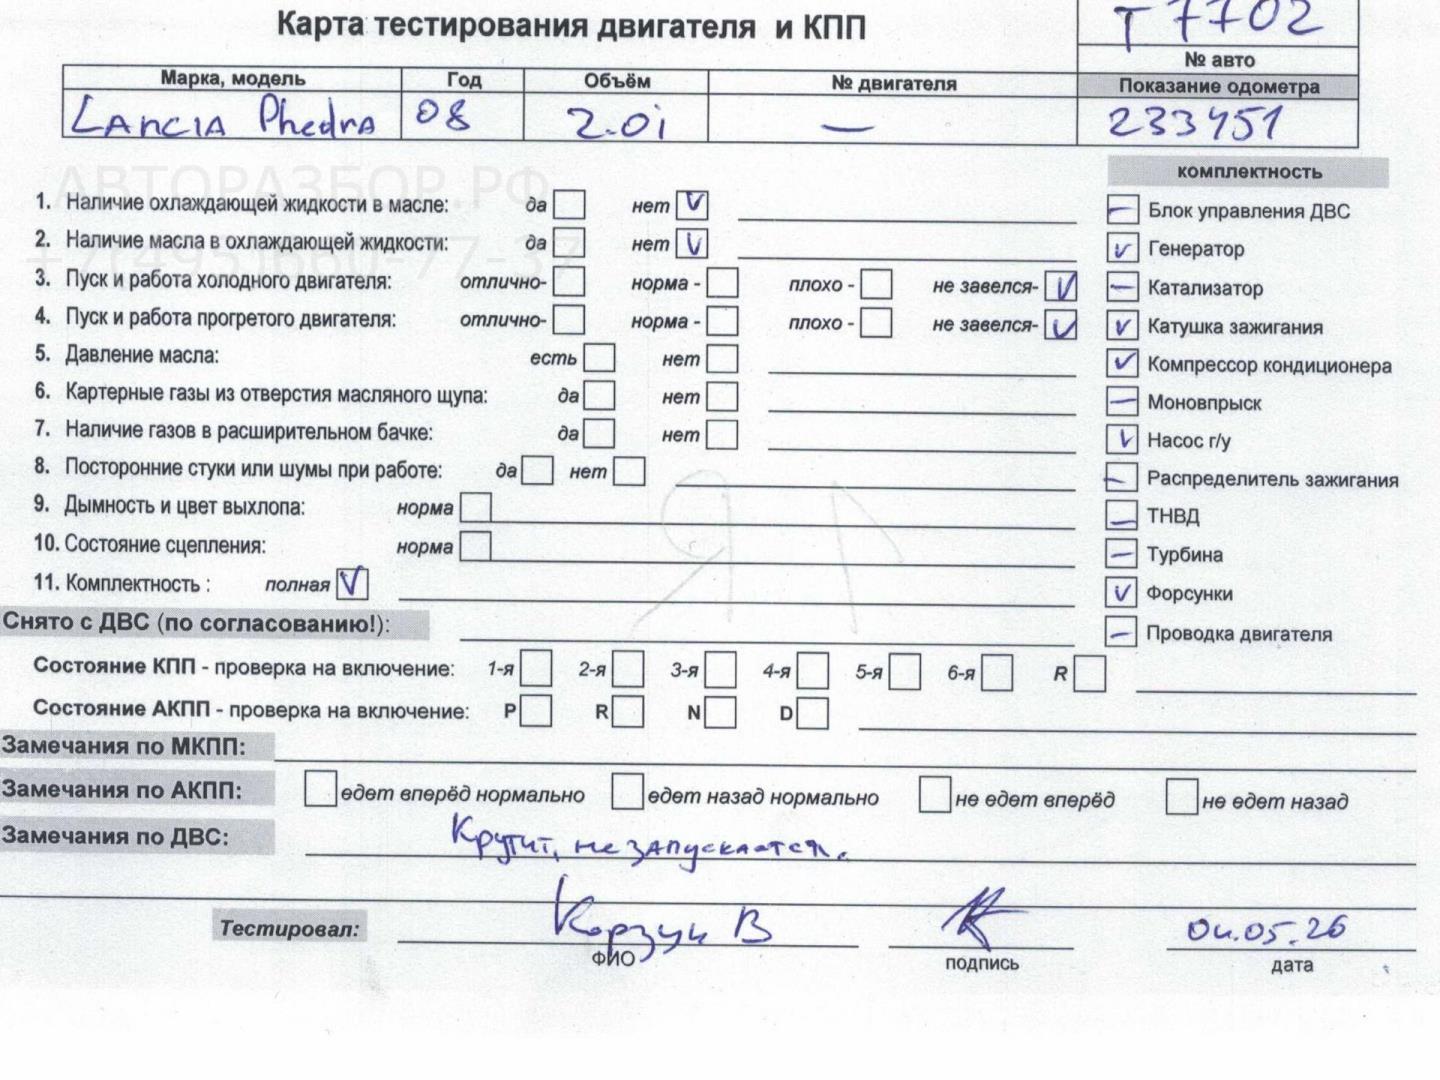 Карта тестирования двигателя и КПП
Т 7702
№ авто
Марка, модель Год Объём № двигателя Показание одометра
Lancia Phedra 08 2.0i — 233451
АВТОРАЗБОР.РФ
+7(495)660-77-37
комплектность
1. Наличие охлаждающей жидкости в масле: да нет V
— Блок управления ДВС
2. Наличие масла в охлаждающей жидкости: да нет V
V Генератор
3. Пуск и работа холодного двигателя: отлично- норма - плохо - не завелся- V
— Катализатор
4. Пуск и работа прогретого двигателя: отлично- норма - плохо - не завелся- V
V Катушка зажигания
5. Давление масла: есть нет
V Компрессор кондиционера
6. Картерные газы из отверстия масляного щупа: да нет
— Моновпрыск
7. Наличие газов в расширительном бачке: да нет
V Насос г/у
8. Посторонние стуки или шумы при работе: да нет
— Распределитель зажигания
9. Дымность и цвет выхлопа: норма
— ТНВД
10. Состояние сцепления: норма
— Турбина
11. Комплектность : полная V
V Форсунки
Снято с ДВС (по согласованию!):
— Проводка двигателя
Состояние КПП - проверка на включение: 1-я 2-я 3-я 4-я 5-я 6-я R
Состояние АКПП - проверка на включение: P R N D
Замечания по МКПП:
Замечания по АКПП: едет вперёд нормально едет назад нормально не едет вперёд не едет назад
Замечания по ДВС: Крутит, не запускается.
Тестировал: Корзун В 04.05.26
ФИО подпись дата